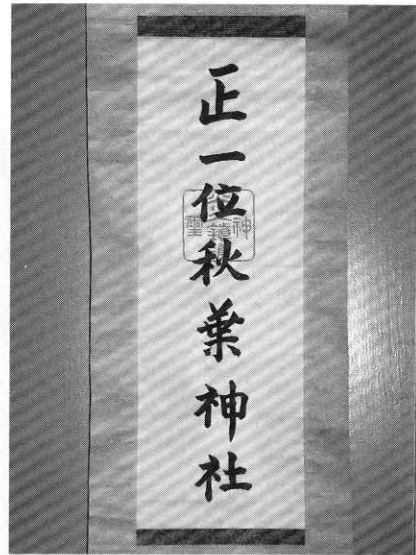 正一位秋葉神社